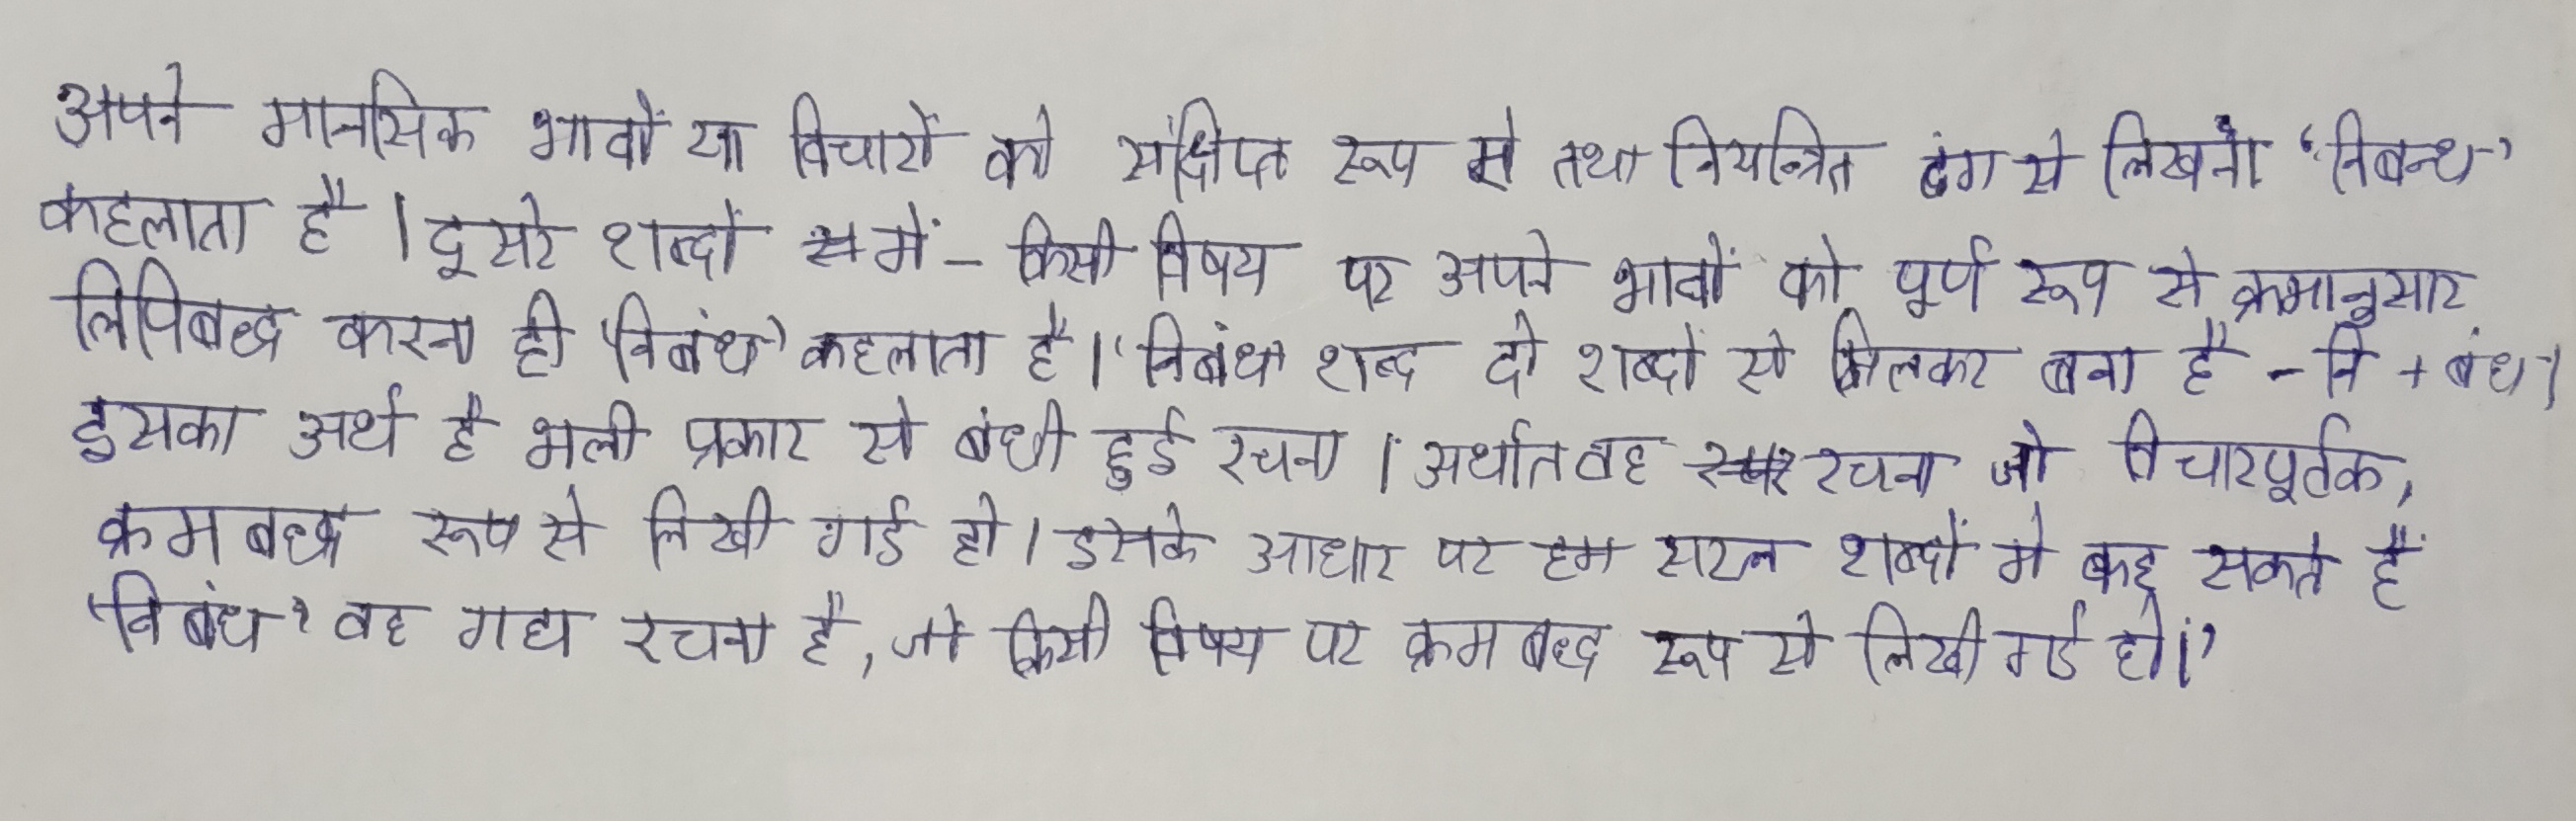 अपने मानसिक भावों या विचारों को संक्षिप्त रूप से तथा नियन्त्रित ढंग से लिखना ‘निबन्ध’
कहलाता है । दूसरे शब्दों में – किसी विषय पर अपने भावों को पूर्ण रूप से क्रमानुसार
लिपिबद्ध करना ही ‘निबंध’ कहलाता है । ‘निबंध’ शब्द दो शब्दों से मिलकर बना है – नि + बंध ।
इसका अर्थ है भली प्रकार से बंधी हुई रचना । अर्थात वह रचना जो विचारपूर्वक,
क्रम बद्ध रूप से लिखी गई हो । इसके आधार पर हम सरल शब्दों मे कह सकते हैं
‘निबंध’ वह गद्य रचना है, जो किसी विषय पर क्रम बद्ध रूप से लिखी गई हो।’